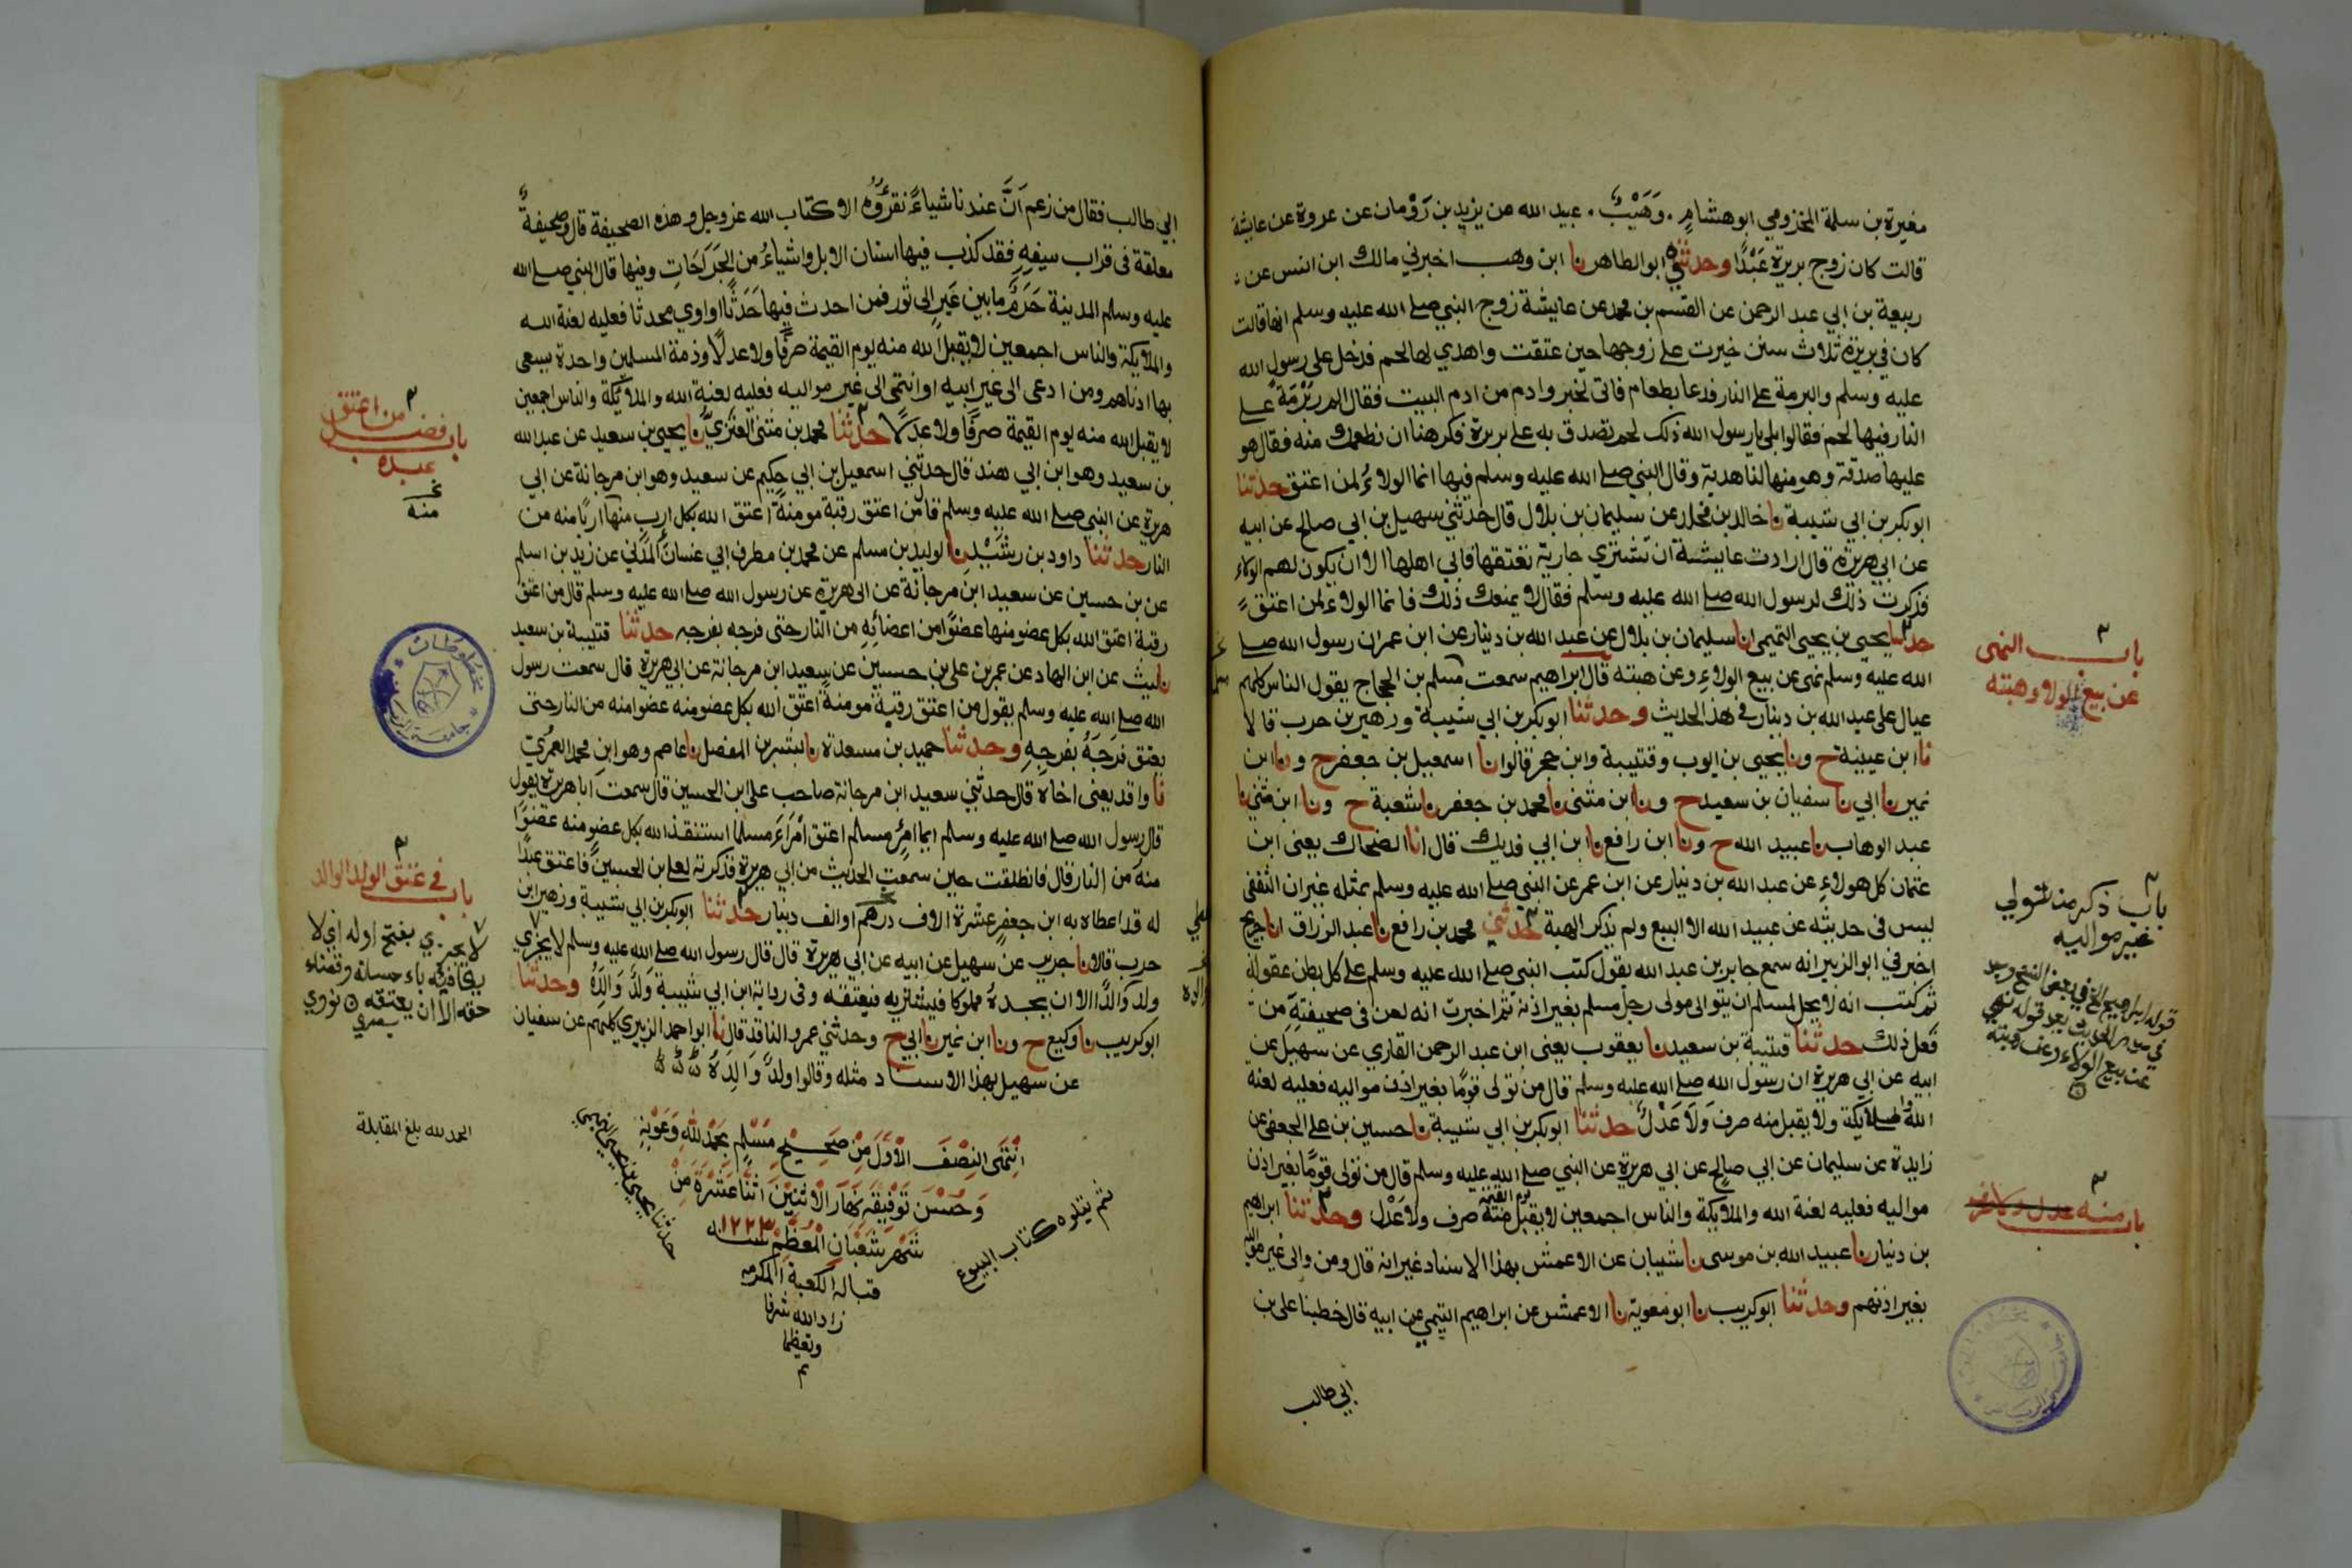 مغيرة بن سلمة المخزومي ابو هشام . وَهَيْبٌ . عبيد الله عن يزيد بن رَوْمان عن عروة عن عايشة
قالت كان زوج بريرة عَبْدًا وحدثني ابو الطاهر نا ابن وهب اخبرني مالك ابن انس عن
ربيعة بن ابي عبد الرحمن عن القسم بن محمد عن عايشة زوج النبي صلى الله عليه وسلم انها قالت
كان في بريرة ثلاث سنن خيرت على زوجها حين عتقت واهدي لها لحم فدخل على رسول الله
عليه وسلم والبرمة على النار فدعا بطعام فاتى بخبز وادم من ادم البيت فقال الم ار بُرْمَة على
النار فيها لحم فقالوا بلى يا رسول الله ذلك لحم تصدق به على بريرة فكرهنا ان نطعمك منه فقال هو
عليها صدقة وهو منها لنا هدية وقال النبي صلى الله عليه وسلم فيها انما الولاءُ لمن اعتق حدثنا
ابو بكر بن ابي شيبة نا خالد بن مخلد عن سليمان بن بلال قال حدثني سهيل بن ابي صالح عن ابيه
عن ابي هريرة قال ارادت عايشة ان تشتري جارية تعتقها فابى اهلها الا ان يكون لهم الولاء
فذكرت ذلك لرسول الله صلى الله عليه وسلم فقال لا يمنعك ذلك فانما الولاء لمن اعتق
حدثنا يحيى بن يحيى التميمي انا سليمان بن بلال عن عبد الله بن دينار عن ابن عمر ان رسول الله صلى
الله عليه وسلم نهى عن بيع الولاءِ وعن هبته قال ابراهيم سمعت مسلم بن الحجاج يقول الناس كلهم
عيال على عبد الله بن دينار في هذ الحديث وحدثنا ابو بكر بن ابي شيبة وزهير بن حرب قالا
نا ابن عيينة ح ونا يحيى بن ايوب وقتيبة وابن حجر قالوا نا اسمعيل بن جعفر ح ونا ابن
نمير نا ابي نا سفيان بن سعيد ح ونا ابن مثنى نا محمد بن جعفر نا شعبة ح ونا ابن مثنى نا
عبد الوهاب نا عبيد الله ح ونا ابن رافع نا ابن ابي فديك قال انا الضحاك يعنى ابن
عثمان كل هولاءِ عن عبد الله بن دينار عن ابن عمر عن النبي صلى الله عليه وسلم بمثله غير ان الثقفى
ليس في حديثه عن عبيد الله الا البيع ولم يذكر الهبة حدثني محمد بن رافع نا عبد الرزاق انا جريج
اخبرني ابو الزبير انه سمع جابر بن عبد الله يقول كتب النبي صلى الله عليه وسلم على كل بطن عقولة
ثم كتب انه لا يحل لمسلم ان يتوالى مولى رجل مسلم بغير اذنه ثم اخبرت انه لعن في صحيفتِهِ من
فعل ذلك حدثنا قتيبة بن سعيد نا يعقوب يعنى ابن عبد الرحمن القاري عن سهيل عن
ابيه عن ابي هريرة ان رسول الله صلى الله عليه وسلم قال من تولى قومًا بغير اذن مواليه فعليه لعنة
الله والملايكة ولا يقبل منه صرف وَلَا عَدْلٌ حدثنا ابو بكر بن ابي شيبة نا حسين بن على الجعفى عن
زايدة عن سليمان عن ابي صالح عن ابي هريرة عن النبي صلى الله عليه وسلم قال من تولى قومًا بغير اذن
مواليه فعليه لعنة الله والملايكة والناس اجمعين لا يقبل منه يوم القيمة صرف ولا عَدْل وحدثنا ابراهيم
بن دينار نا عبيد الله بن موسى نا شيبان عن الاعمش بهذا الاسناد غير انه قال ومن والى غير مواليه
بغير اذنهم وحدثنا ابو كريب نا ابو معوية نا الاعمش عن ابراهيم التيمي عن ابيه قال خطبنا على بن
ابي طالب
باب النهى
عن بيع الولاء وهبته
باب ذكر من تولي
غير مواليه
قوله ابراهيم الخ في بعض النسخ وجد
عن بيع الولاء وعن هبته
ابي طالب فقال من زعم اَنَّ عندنا شياءً نقرؤُه الا كتاب الله عز وجل وهذه الصحيفة قال وصحيفةٌ
معلقة فى قراب سيفِهِ فقد كذب فيها اسنان الابل واشياءُ من الجَرَاحَاتِ وفيها قال النبي صلى الله
عليه وسلم المدينة حَرَمٌ ما بين عَيرٍ الى ثور فمن احدث فيها حَدَثًا او اوي محدثا فعليه لعنة الله
والملايكة والناس اجمعين لا يقبل الله منه يوم القيمة صرفًا ولا عدلًا وذمة المسلمين واحدة يسعى
بها ادناهم ومن ادعى الى غير ابيه او انتمى الى غير مواليه فعليه لعنة الله والملائكة والناس اجمعين
لا يقبل الله منه يوم القيمة صرفًا ولا عدلًا حدثنا محمد بن مثنى العَنَزيُّ نا يحيى بن سعيد عن عبد الله
بن سعيد وهو ابن ابي هند قال حدثني اسمعيل بن ابي حكيم عن سعيد وهو ابن مرجانة عن ابي
هريرة عن النبي صلى الله عليه وسلم قال من اعتق رقبة مومنةً اعتق الله بكل اربٍ منها اربًا منه من
النار حدثنا داود بن رشَيْدٍ نا الوليد بن مسلم عن محمد بن مطرف ابي غسان المدني عن زيد بن اسلم
عن بن حسين عن سعيد ابن مرجانة عن ابى هريرة عن رسول الله صلى الله عليه وسلم قال من اعتق
رقبة اعتق الله بكل عضو منها عضوًا من اعضائِهِ من النار حتى فرجه بفرجه حدثنا قتيبة بن سعيد
نا ليث عن ابن الهاد عن عمر بن على بن حسين عن سعيد ابن مرجانة عن ابي هريرة قال سمعت رسول
الله صلى الله عليه وسلم يقول من اعتق رقبة مومنة اعتق الله بكل عضو منه عضوا منه من النار حتى
يعتق فرجَهُ بفرجِهِ وحدثنا حميد بن مسعدة نا بشر بن المفضل نا عاصم وهو ابن محمد العمُرِيّ
نا واقد يعنى اخاه قال حدثني سعيد ابن مرجانة صاحب على ابن الحسين قال سمعت ابا هريرة يقول
قال رسول الله صلى الله عليه وسلم ايما امرٍئٍ مسلم اعتق امْرَاءً مسلما استنقذ الله بكل عضو منه عضوًا
منه من النار قال فانطلقت حين سمعت الحديث من ابي هريرة فذكرته لعلى بن الحسين فاعتق عبدًا
له قد اعطاه به ابن جعفر عشرة الاف درهم او الف دينار حدثنا ابو بكر بن ابي شيبة وزهير ابن
حرب قالا نا جرير عن سهيل عن ابيه عن ابي هريرة قال قال رسول الله صلى الله عليه وسلم لا يجزي
ولد وَالدًا الا ان يجدهُ مملوكا فيشتريه فيعتقه وفى رواية ابن ابي شيبة وَلَدٌ وَالِدَهُ وحدثنا
ابو كريب نا وكيع ح ونا ابن نمير نا ابي ح وحدثني عمرو الناقد قال نا ابو احمد الزبيري كلهم عن سفيان
عن سهيل بهذا الاسناد مثله وقالوا ولدٌ وَالِدَهُ
انْتَهَى النِصْفُ الْاَوَّلُ مِنْ صَحِيْحِ مُسْلِمٍ بِحَمْدِ اللهِ وَعَوْنِهِ
وَحُسْنِ تَوْفِيْقِهِ نَهَارَ الْاثْنَيْنِ اثْنَا عَشَرَةَ مِنْ
شَهْرِ شَعْبَانِ الْمُعَظَّمْ سنة ١٢٢٣
قبالة الكعبة المكرمه
زاد الله شرفا
وتعظيما
م
ثم يتلوه كتاب البيوع
حدثنا يحيى بن يحيى التميمي
باب فضل من اعتق
عبده
باب في عتق الولد الوالد
لا يجزي بفتح اوله اي لا
يكافيه باحسانه وقضاء
حقه الا ان يعتقه نووي
الحمد لله بلغ المقابلة
مخطوطات